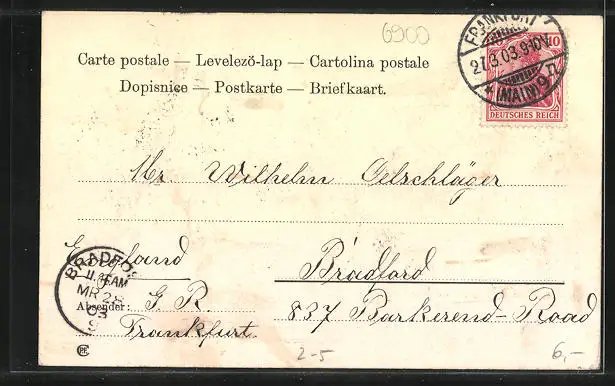 6900
FRANKFURT
27.3.03.9-10V.
* (MAIN) 9 n
10
DEUTSCHES REICH
Carte postale — Levelező-lap — Cartolina postale
Dopisnice — Postkarte — Briefkaart.
Mr Wilhelm Oelschläger
England
Bradford
BRADFO
11.15AM
MR 28
03
Absender: G. R
837 Barkerend-Road
Frankfurt.
2-5
6,-